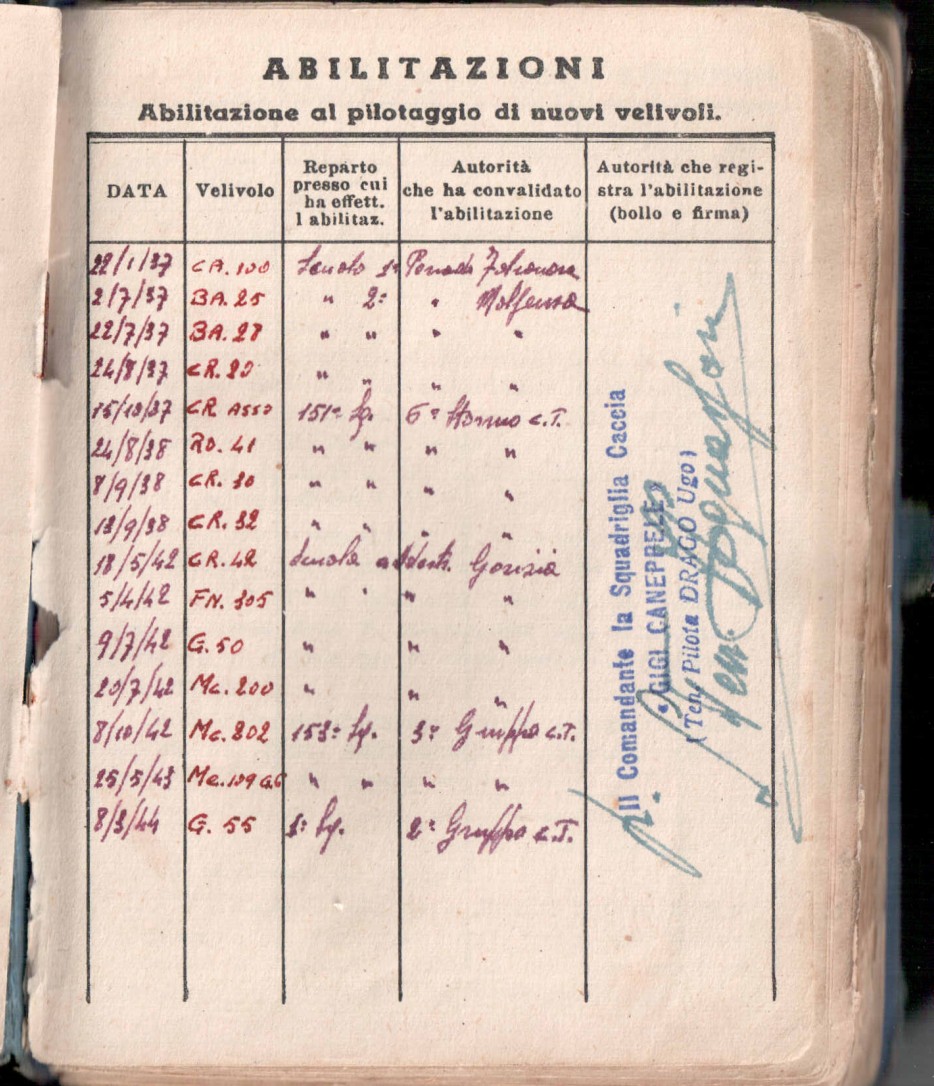 ABILITAZIONI
Abilitazione al pilotaggio di nuovi velivoli.
DATA Velivolo Reparto presso cui ha effett. l abilitaz. Autorità che ha convalidato l'abilitazione Autorità che regi- stra l'abilitazione (bollo e firma)
22/1/37 CA. 100 Scuola 1°
2/7/37 BA. 25 " 2° " Malpensa
22/7/37 BA. 28 " " " "
24/8/37 CR. 20 " " " "
15/10/37 CR ASSO 151ª Sq. 6° Stormo C.T.
24/8/38 RO. 41 " " " "
8/9/38 CR. 30 " " " "
13/9/38 CR. 32 " " " "
18/5/42 CR. 42 Scuola Gorizia
5/4/42 FN. 305 " " " "
9/7/42 G. 50 " " "
20/7/42 Mc. 200 " " "
8/10/42 Mc. 202 153ª Sq. 3° Gruppo C.T.
25/5/43 Me. 109 G.6 " " " "
8/3/44 G. 55 1ª Sq. 2° Gruppo C.T.
Il Comandante la Squadriglia Caccia
"GIGI CANEPPELE"
(Ten. Pilota DRAGO Ugo)